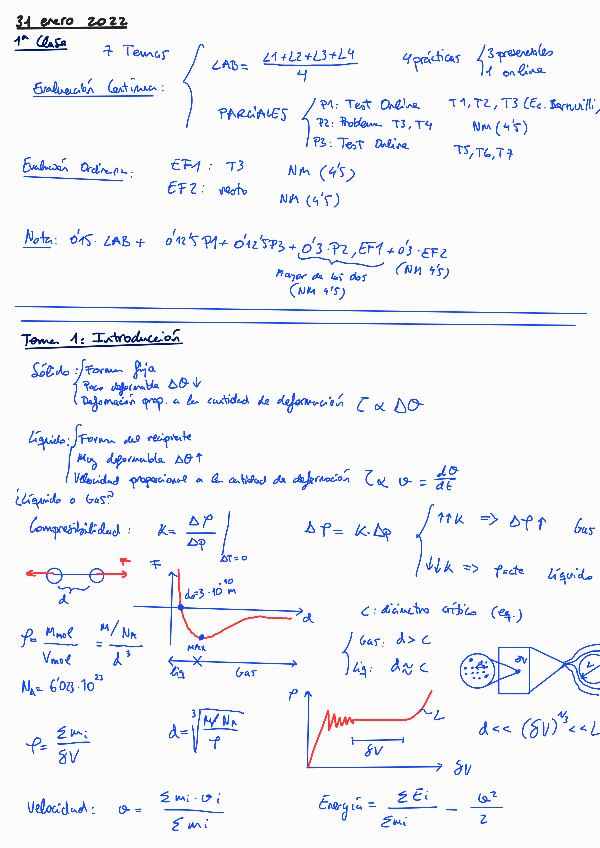 31 enero 2022
1ª Clase
7 Temas
Evaluación Continua:
LAB = (L1+L2+L3+L4)/4
4 prácticas { 3 presenciales
1 online
PARCIALES { P1: Test Online T1, T2, T3 (Ec. Bernuilli)
P2: Problema T3, T4 NM (4'5)
P3: Test Online T5, T6, T7
Evaluación Ordinaria: EF1: T3 NM (4'5)
EF2: resto NM (4'5)
Nota: 0'15 · LAB + 0'12'5 P1 + 0'12'5 P3 + 0'3 · P2, EF1 + 0'3 · EF2
Mayor de las dos (NM 4'5)
(NM 4'5)
Tema 1: Introducción
Sólido: { Forma fija
Poco deformable Δθ ↓
Deformación prop. a la cantidad de deformación τ ∝ Δθ
Líquido: { Forma del recipiente
Muy deformable Δθ ↑
Velocidad proporcional a la cantidad de deformación τ ∝ v = dθ/dt
¿Líquido o Gas?
Compresibilidad: K = Δρ/Δp | ΔT=0
Δρ = K·Δp { ↑↑K => Δρ↑ Gas
↓↓K => ρ=cte Líquido
F
d
F
d₀=3·10⁻¹⁰ m
d
MAX
Liq Gas
C: diámetro crítico (eq.)
{ Gas: d > C
Liq: d ≈ C
δV
L
ρ = Mmol/Vmol = (M/NA)/d³
NA = 6'023·10²³
ρ = Σmi/δV
d = ³√((M/NA)/ρ)
ρ
L
δV
δV
d << (δV)^1/3 << L
Velocidad: v = Σmi·vi/Σmi
Energía = ΣEi/Σmi − v²/2